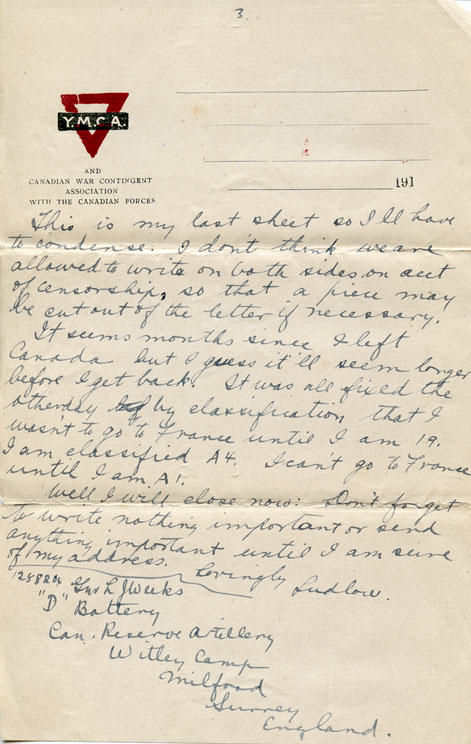 3.
Y.M.C.A.
AND
CANADIAN WAR CONTINGENT
ASSOCIATION
WITH THE CANADIAN FORCES
191
This is my last sheet so I'll have
to condense. I don't think we are
allowed to write on both sides on acct
of censorship, so that a piece may
be cut out of the letter if necessary.
It seems months since I left
Canada but I guess it'll seem longer
before I get back. It was all fixed the
otherday by classification that I
wasn't to go to France until I am 19.
I am classified A4. I can't go to France
until I am A1.
Well I will close now: Don't forget
to write nothing important or send
anything important until I am sure
of my address. Lovingly Ludlow.
Gnr L J Weeks
"D" Battery
Can. Reserve Artillery
Witley Camp
Milford
Surrey
England.